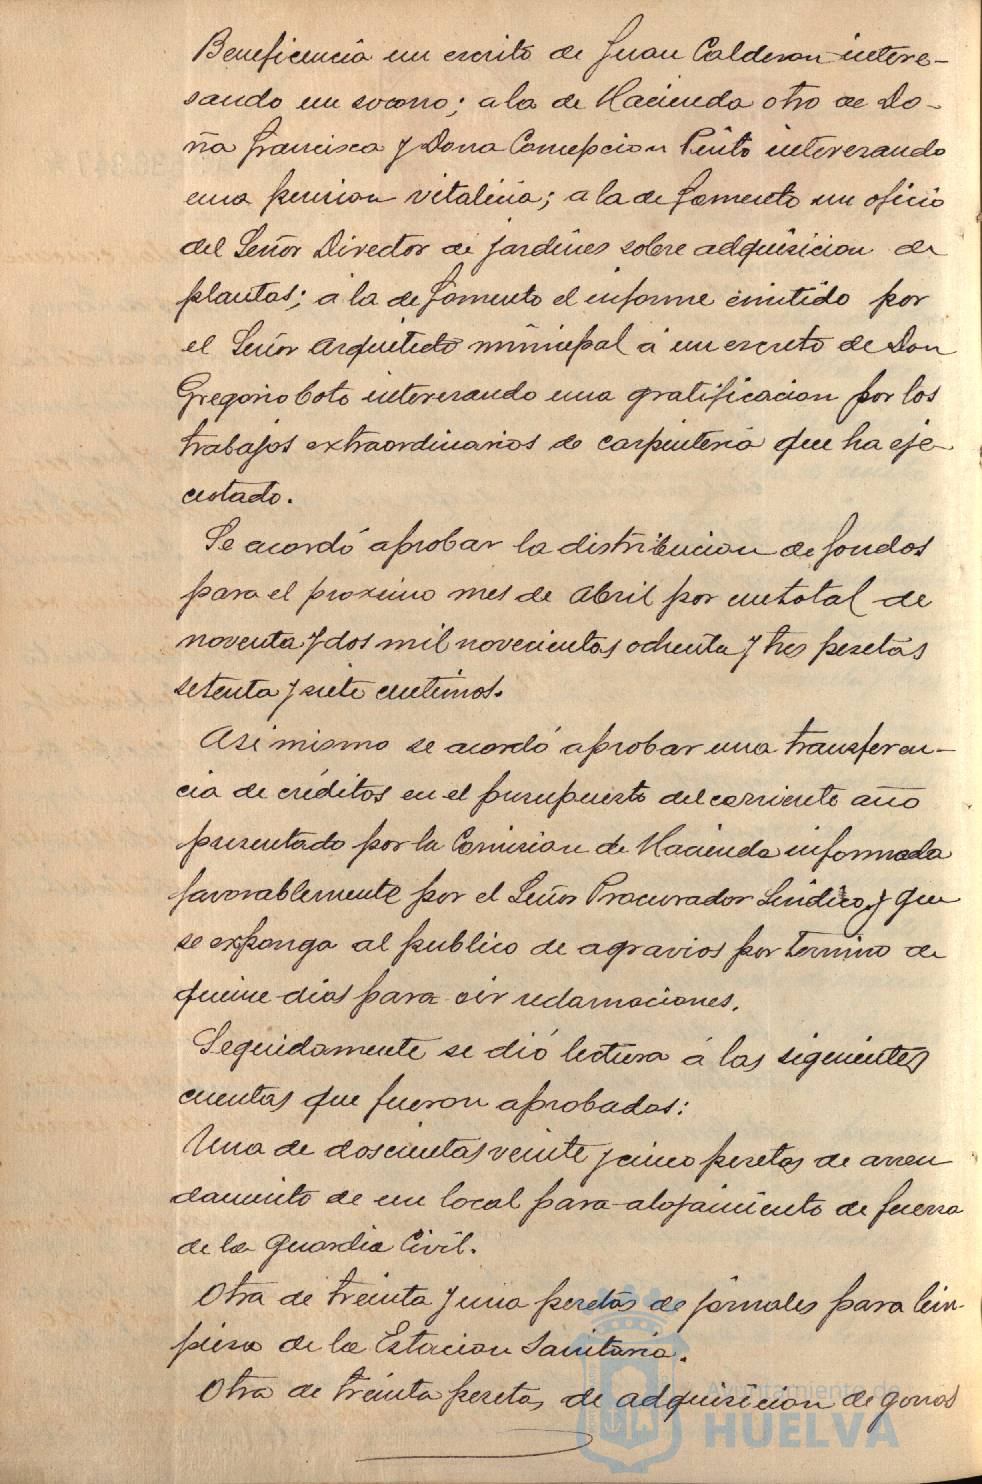 Beneficencia un escrito de Juan Calderon intere-
sando un socorro; a la de Hacienda otro de Do-
ña Francisca y Dona Concepcion Pinto interesando
una pension vitalicia; a la de Fomento un oficio
del Señor Director de jardines sobre adquisicion de
plantas; á la de Fomento el informe emitido por
el Señor Arquitecto municipal á un escrito de Don
Gregorio Coto interesando una gratificacion por los
trabajos extraordinarios de carpinteria que ha eje-
cutado.
Se acordó aprobar la distribucion de fondos
para el proximo mes de Abril por un total de
noventa y dos mil novecientas ochenta y tres pesetas
setenta y siete centimos.
Asi mismo se acordó aprobar una transferen-
cia de créditos en el presupuesto del corriente año
presentado por la Comision de Hacienda informada
favorablemente por el Señor Procurador Sindico y que
se exponga al publico de agravios por termino de
quince dias para oir reclamaciones.
Seguidamente se dió lectura á las siguientes
cuentas que fueron aprobadas:
Una de doscientas veinte y cinco pesetas de arren
damiento de un local para alojamiento de fuerza
de la Guardia Civil.
Otra de treinta y una pesetas de jornales para lim-
pieza de la Estacion Sanitaria.
Otra de treinta pesetas de adquisicion de gorros
Ayuntamiento de
HUELVA